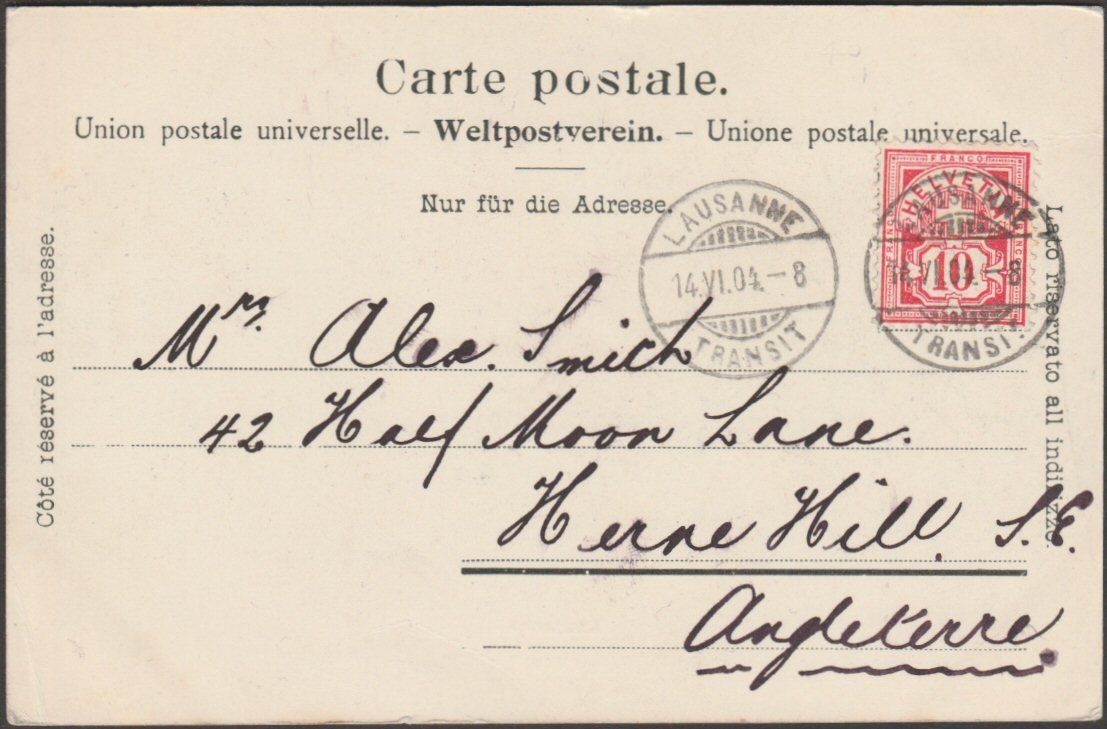 Carte postale.
Union postale universelle. – Weltpostverein. – Unione postale universale.
Nur für die Adresse.
Côté réservé à l'adresse.
Lato riservato all indirizzo.
FRANCO
HELVETIA
FRANCO
FRANCO
10
LAUSANNE
14.VI.04.–8
TRANSIT
LAUSANNE
14.VI.04.–8
TRANSIT
Mrs. Alex. Smith
42 Half Moon Lane.
Herne Hill. S.E.
Angleterre.